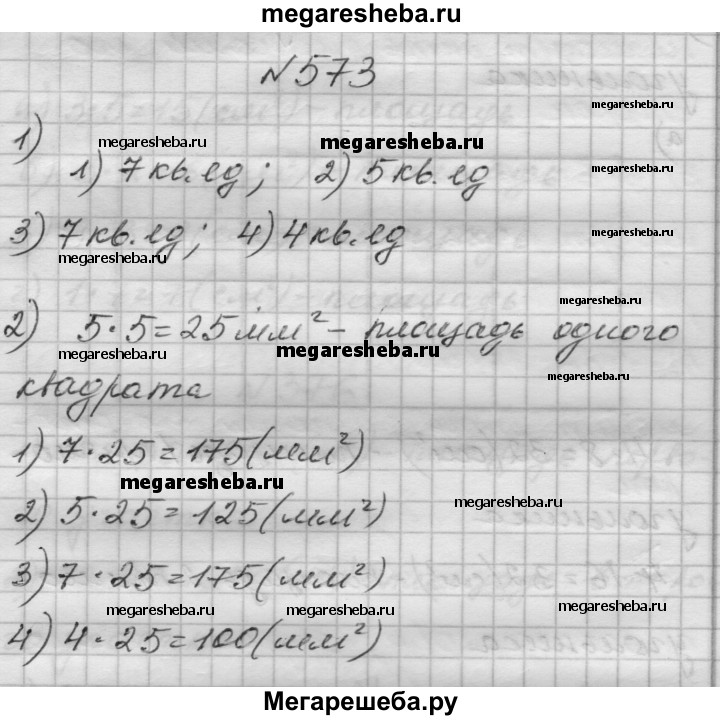 megaresheba.ru
№573
megaresheba.ru
1)
megaresheba.ru megaresheba.ru
1) 7 кв.ед; 2) 5 кв.ед
megaresheba.ru
3) 7 кв.ед; 4) 4 кв.ед
megaresheba.ru
megaresheba.ru
megaresheba.ru
2) 5·5=25 мм² - площадь одного
megaresheba.ru megaresheba.ru
megaresheba.ru
квадрата
1) 7·25=175(мм²)
megaresheba.ru
megaresheba.ru
2) 5·25=125(мм²)
3) 7·25=175(мм²)
megaresheba.ru megaresheba.ru megaresheba.ru
4) 4·25=100(мм²)
Мегарешеба.ру